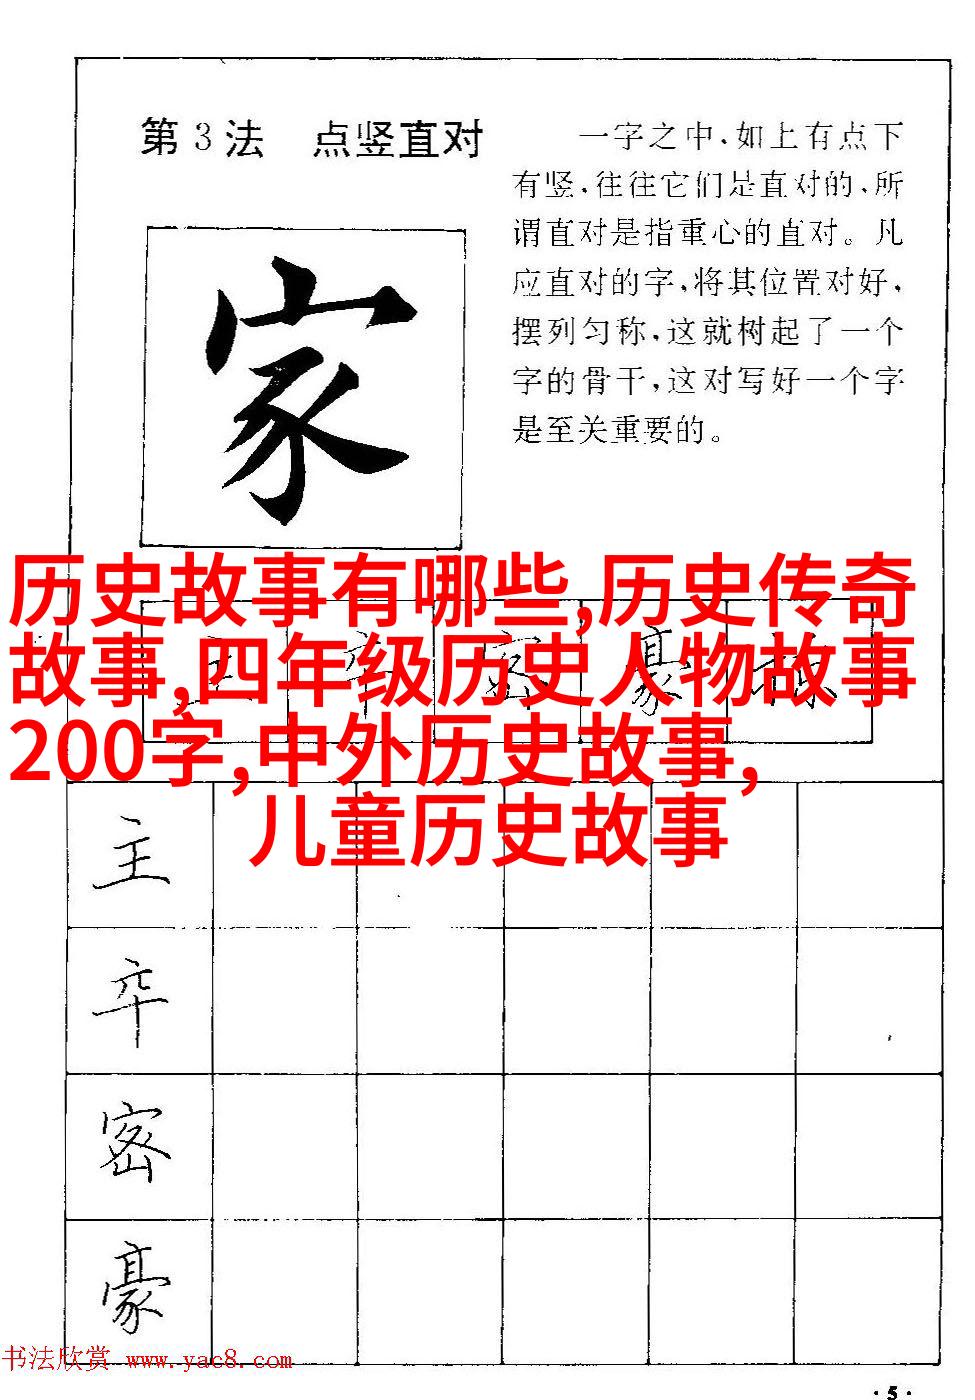 第3法 点竖直对
一字之中,如上有点下
有竖,往往它们是直对的,所
谓直对是指重心的直对。凡
应直对的字,将其位置对好,
摆列匀称,这就树起了一个
字的骨干,这对写好一个字
是至关重要的。
家
历史故事有哪些,历史传奇
故事,四年级历史人物故事
200字,中外历史故事,
儿童历史故事
主 卒 密 豪
主
卒
密
豪
书法欣赏 www.yac8.com
·5·